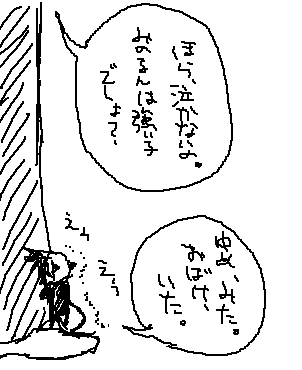 ほら、泣かないよ。
みのるんは強い子
でしょて、
えぅ
えぅ
ゆめ、みた。
おばけ、
いた。